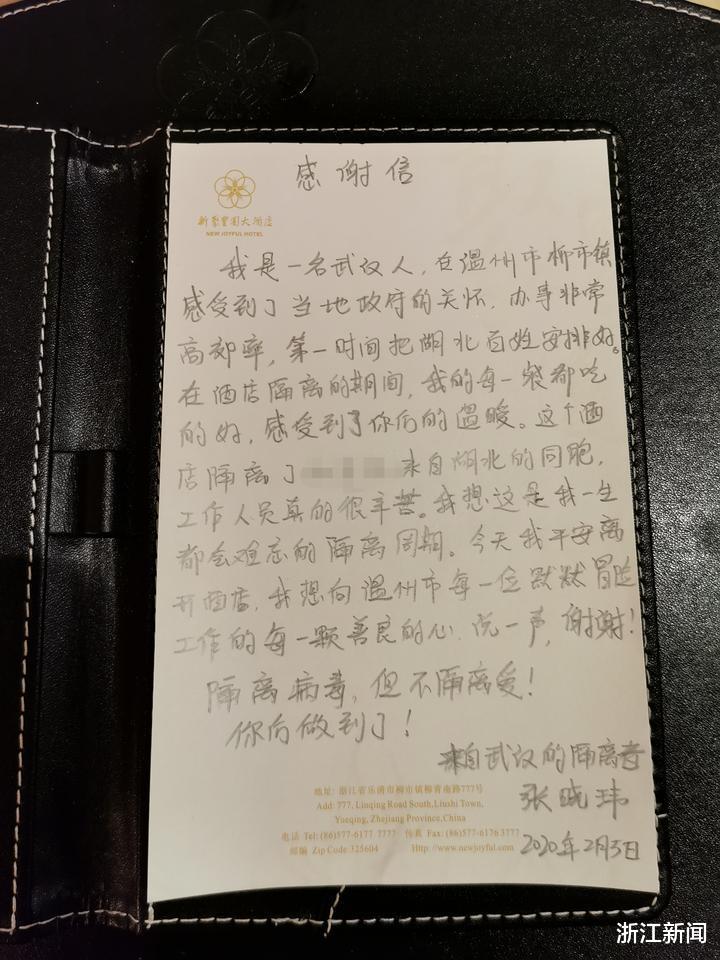 感谢信
新聚丰园大酒店
NEW JOYFUL HOTEL
我是一名武汉人，在温州市柳市镇
感受到了当地政府的关怀，办事非常
高效率，第一时间把湖北百姓安排好。
在酒店隔离的期间，我的每一餐都吃
的好，感受到了你们的温暖。这个酒
店隔离了 来自湖北的同胞，
工作人员真的很辛苦。我想这是我一生
都会难忘的隔离周期。今天我平安离
开酒店，我想向温州市每一位默默冒险
工作的每一颗善良的心，说一声，谢谢！
隔离病毒，但不隔离爱！
你们做到了！
来自武汉的隔离者
张晓玮
2020年2月3日
地址: 浙江省乐清市柳市镇柳青南路777号
Add: 777, Linqing Road South, Liushi Town,
Yueqing, Zhejiang Province, China
电话 Tel: (86)577-6177 7777 传真 Fax: (86)577-6176 3777
邮编 Zip Code 325604 Http: www.newjoyful.com
浙江新闻